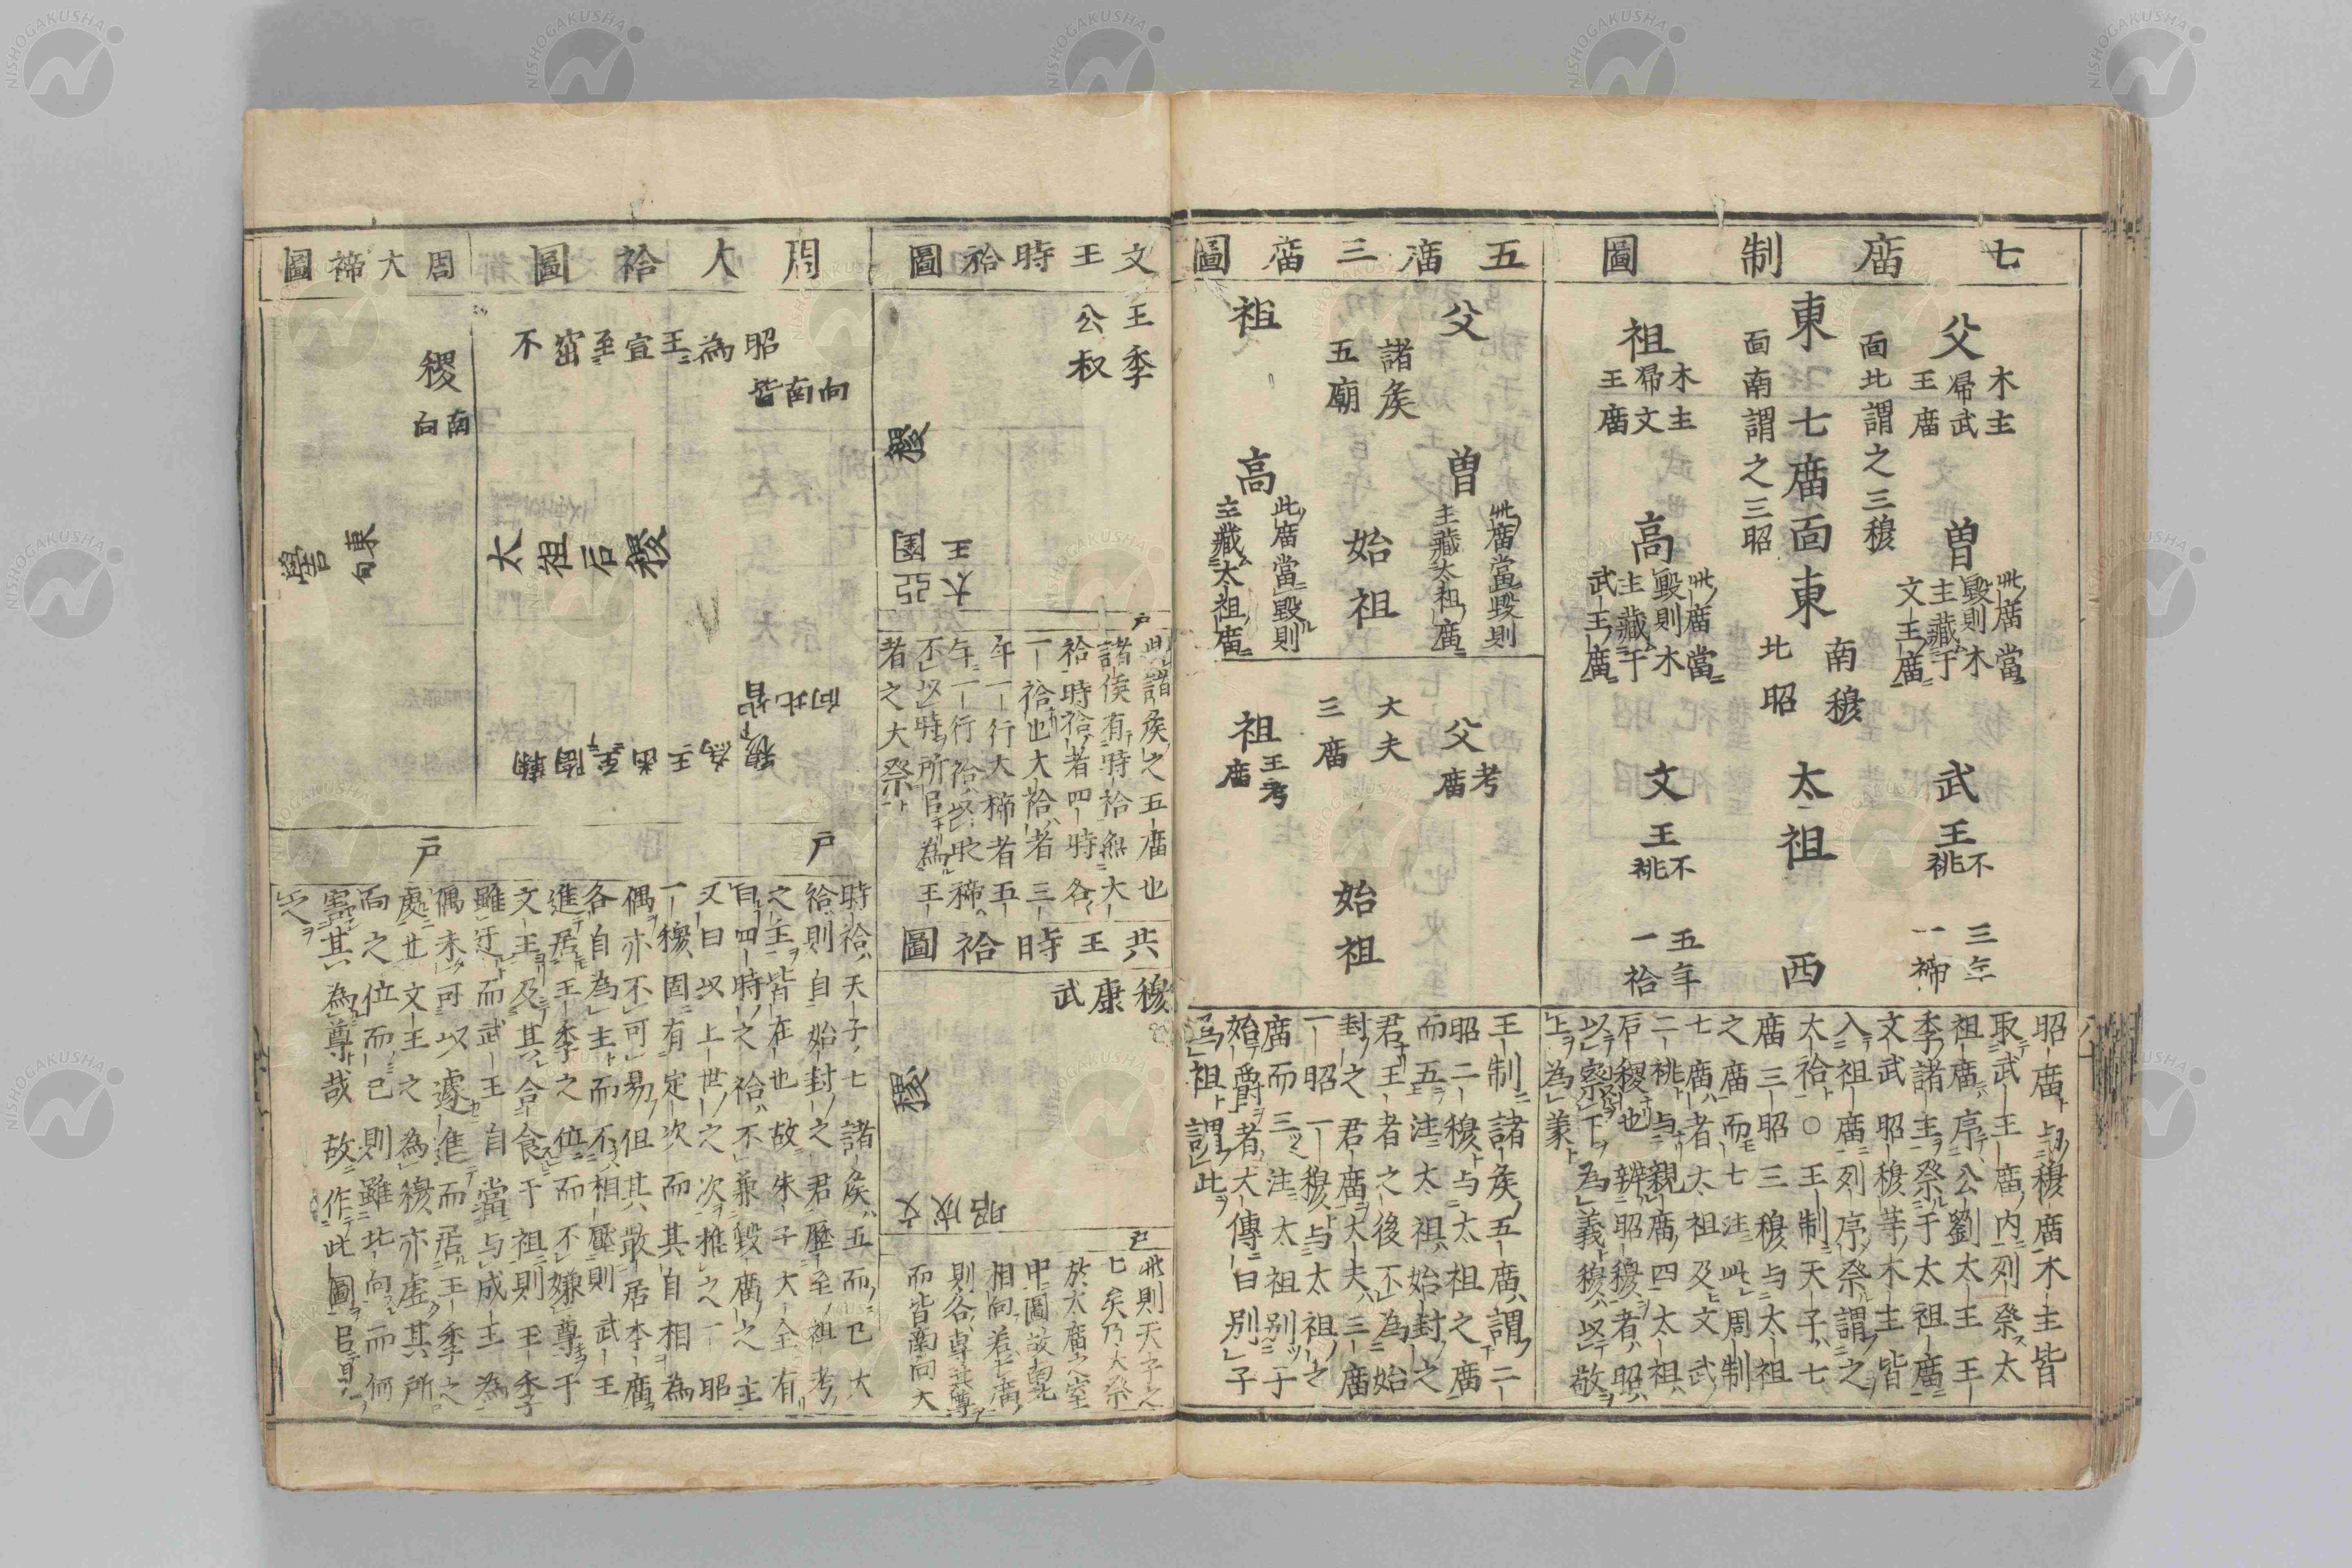 七庿制圖
父
木主
帰武
王庿
曽
此庿當
毀則木
主藏于
文王庿
武王
不祧
三年
一禘
面北謂之三穆
東七庿面東
南穆
北昭
太祖
西
面南謂之三昭
祖
木主
帰文
王庿
高
此庿當
毀則木
主藏于
武王庿
文王
不祧
五年
一祫
昭庿與穆庿木主皆
取武王庿内列祭太
祖庿序公劉太王王
季諸主祭于太祖庿
文武昭穆等木主皆
入祖庿列序祭謂之
太祫○王制天子七
庿三昭三穆与太祖
之庿而七注此周制
七庿者太祖及文武
二祧与親庿四太祖
后稷也辨昭穆者昭
以察下為義穆以敬
上為義
五庿三庿圖
父
曽
此庿當毀則
主藏太祖庿
諸矦
五廟
始祖
祖
高
此庿當毀則
主藏太祖庿
父
考庿
大夫
三庿
始祖
祖
王考
庿
王制諸矦五庿謂二
昭二穆与太祖之庿
而五注太祖始封之
君王者之後不為始
封之君庿大夫三庿
一昭一穆与太祖之
庿而三注太祖別于
始爵者大傳曰別子
爲祖謂此
文王時祫圖
王季
公叔
稷
太王
亞圉
戸
此諸矦之五庿也
諸侯有時祫無大
祫時祫者四時各
一祫也大祫者三
年一行大禘者五
年一行祫以比禘
不以時所㠯為王
者之大祭
共王時祫圖
穆康武
稷
昭成文
戸
此則天子之
七矣乃大祭
於太庿之室
中圖故南北
相向若七庿
則各專其尊
而皆南向大
周大祫圖
昭為王宣至窋不
皆南向
太祖后稷
皆北向
穆為王幽至陶鞠
戸
周大禘圖
稷
南向
嚳
東向
戸
時祫天子七諸矦五而已大
祫則自始封之君歷至祖考
之主皆在也故朱子大全有
曰四時之祫不兼毀庿之主
又曰以上世之次推之一昭
一穆固有定次而其自相為
偶亦不可易但其散居本庿
各自為主而不相壓則武王
進居王季之位而不嫌尊于
文王及其合食于祖則王季
雖迁而武王自當与成王為
偶未可以遽進而居王季之
處也文王之為穆亦虚其所
向之位而已則雖北向而何
害其為尊哉故作此圖㠯見